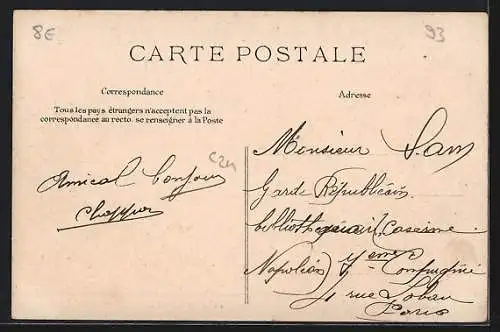 8E
93
CARTE POSTALE
Correspondance
Tous les pays étrangers n'acceptent pas la
correspondance au recto, se renseigner à la Poste
Amical bonjour
Adresse
Monsieur Sam
Garde Républicain
bibliothéquair, Caserne
Napoléon 7eme Compagnie
4 rue Lobau
Paris